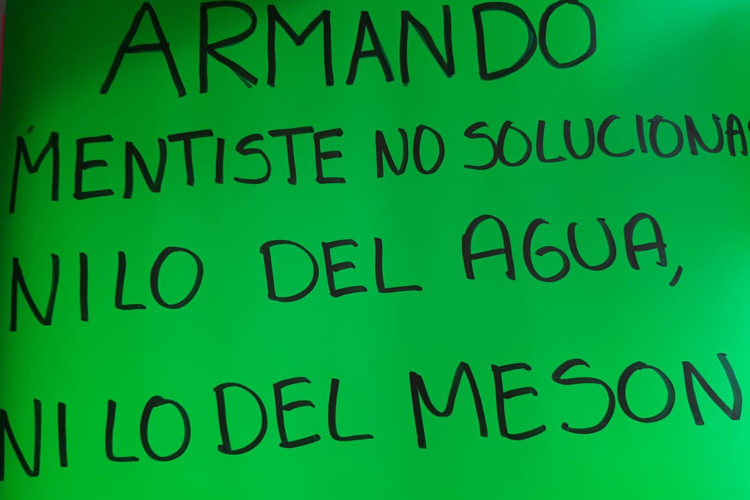 ARMANDO
MENTISTE NO SOLUCIONAS
NI LO DEL AGUA,
NI LO DEL MESON